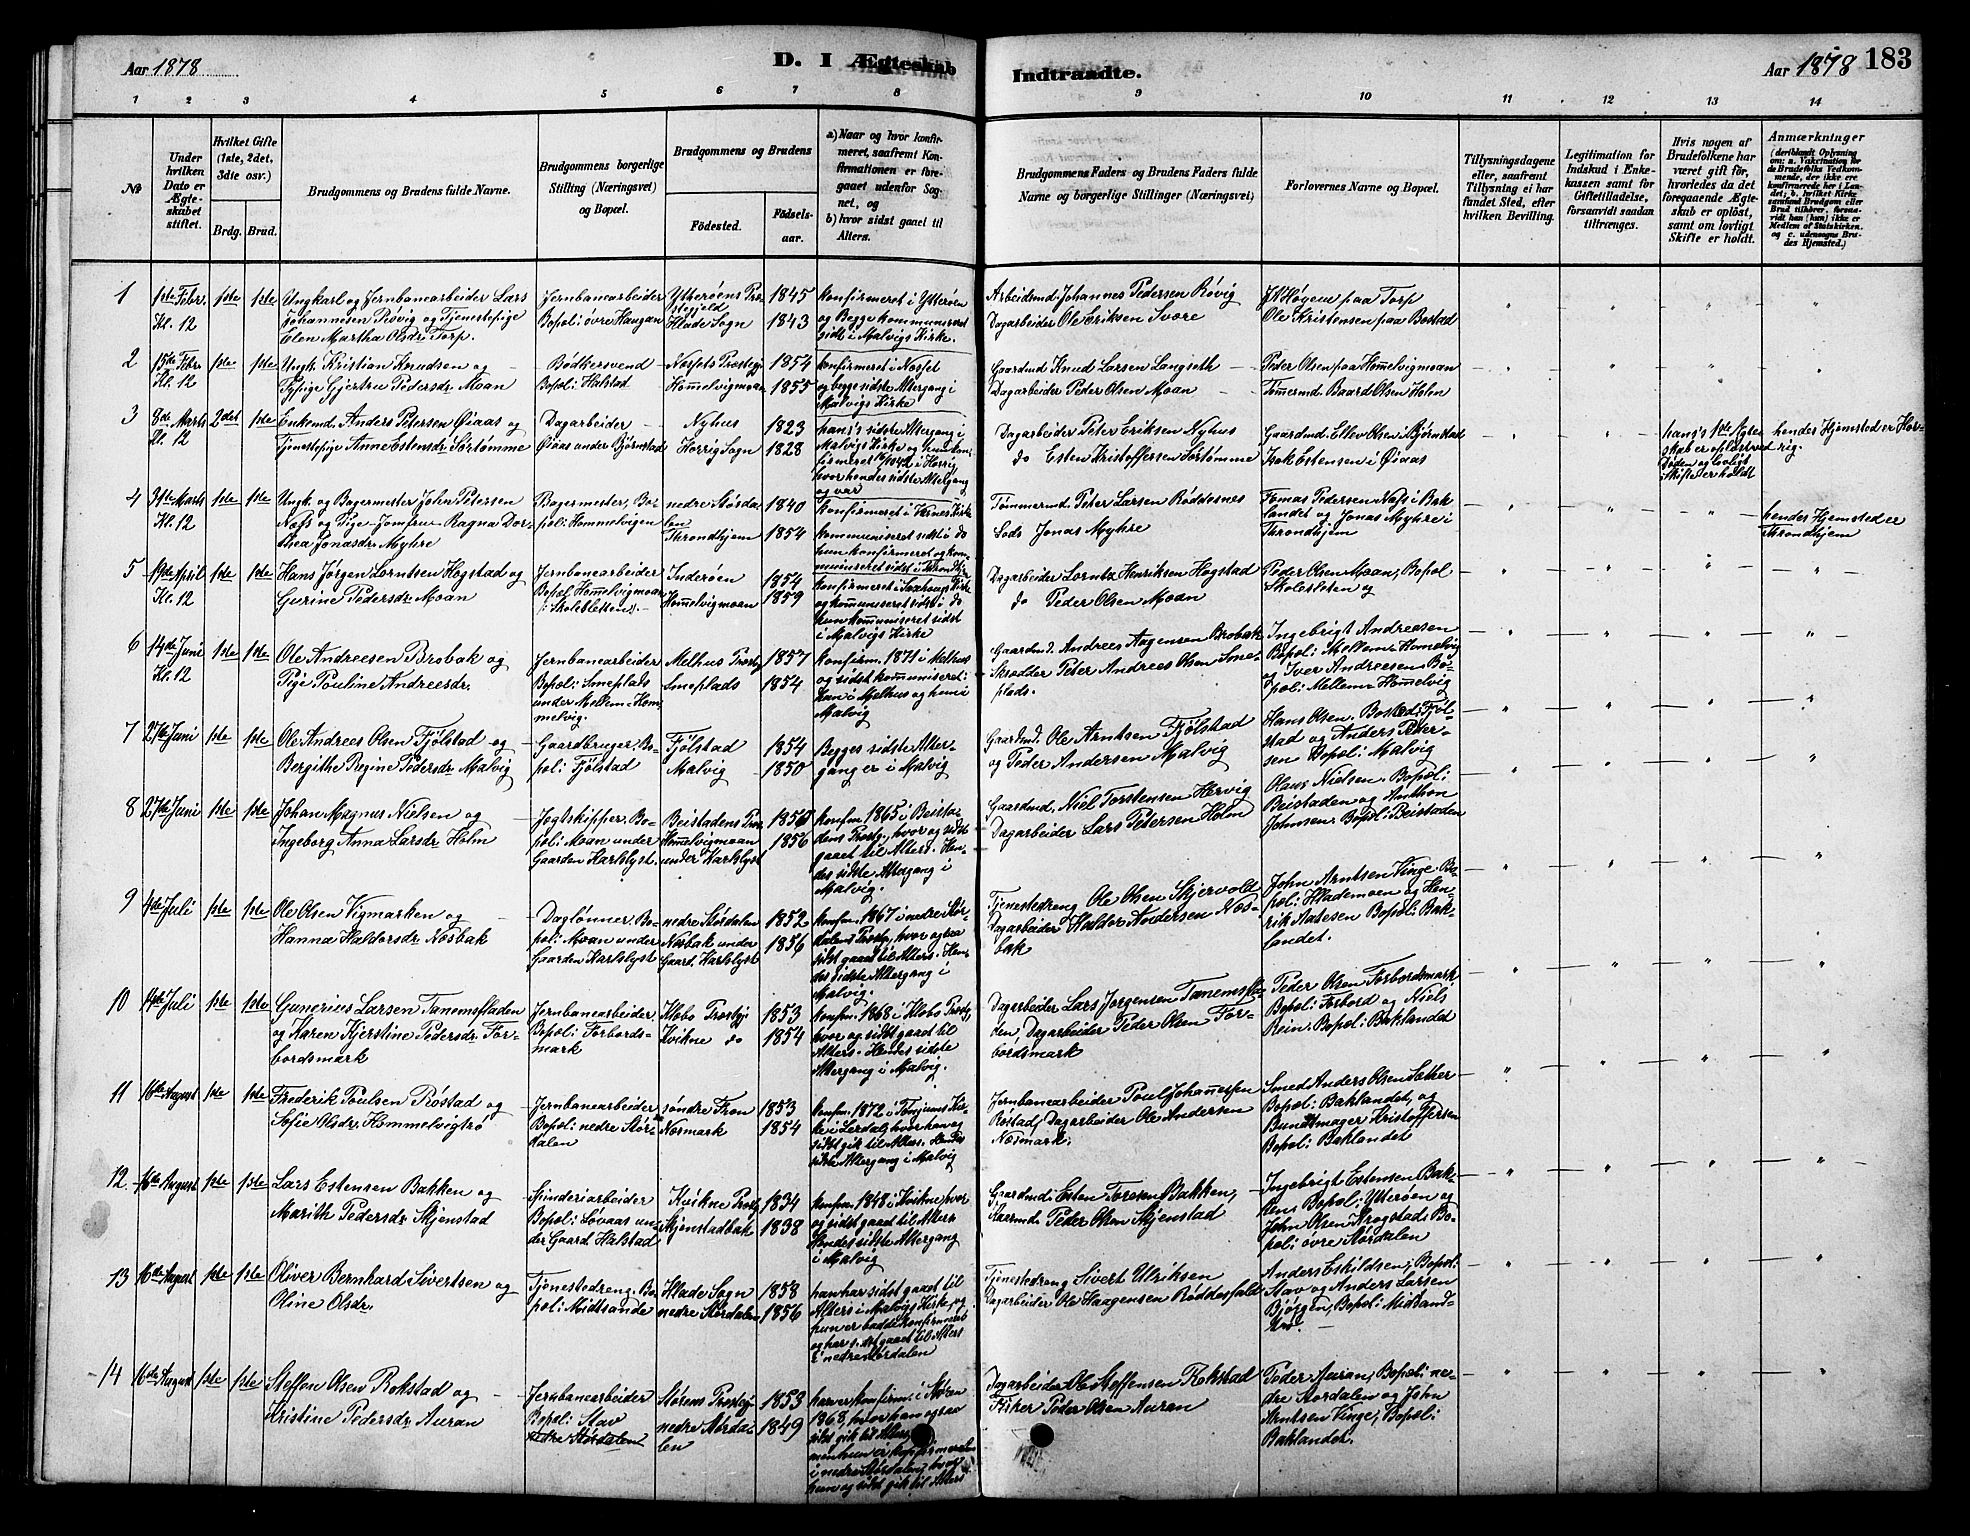 Aar 1878
D. I Ægteskab
Indtraadte.
Aar 1878
183
1 2 3 4 5 6 7 8 9 10 11 12 13 14
No
Under hvilken Dato er Ægteskabet stiftet.
Hvilket Gifte (1ste, 2det, 3die osv.)
Brdg. Brud.
Brudgommens og Brudens fulde Navne.
Brudgommens borgerlige Stilling (Næringsvei) og Bopæl.
Brudgommens og Brudens
Fødested.
Fødselsaar.
a) Naar og hvor konfirmeret, saafremt Konfirmationen er foregaaet udenfor Sognet, og
b) hvor sidst gaaet til Alters.
Brudgommens Faders og Brudens Faders fulde Navne og borgerlige Stillinger (Næringsvei)
Forlovernes Navne og Bopæl.
Tillysningsdagene eller, saafremt Tillysning ei har fundet Sted, efter hvilken Bevilling.
Legitimation for Indskud i Enkekassen samt for Giftetilladelse, forsaavidt saadan tiltrænges.
Hvis nogen af Brudefolkene har været gift før, hvorledes da det foregaaende Ægteskab er opløst, samt om lovligt Skifte er holdt.
Anmærkninger
1 1ste Febr. Kl. 12 1ste 1ste
Ungkarl og Jernbanearbeider Lars
Johannesen Røvig og Tjenestepige
Elen Martha Olsdr. Torp.
Jernbanearbeider
Bopæl: øvre Haugan
Ytterøens Prostegjeld
Hlade Sogn
1845
1843
Konfirmeret i Ytterøen
og Begge kommuniseret
sidst i Malvigs Kirke.
Arbeidsmd. Johannes Pedersen Røvig
Dagarbeider Ole Eriksen Svore
J. Høyem paa Torp
Ole Kristensen paa Bostad
2 15de Febr. Kl. 12 1ste 1ste
Ungk. Kristian Knudsen og
Tjpige Gjertru Pedersdr. Moan
Bødkersvend
Bopæl: Halstad
Nossets Prostegj
Hommelvigmoan
1854
1855
Konfirmeret i Nosset
og begge sidste Altergang i
Malvigs Kirke
Gaardmd Knud Larsen Langseth
Dagarbeider Peter Olsen Moan
Peder Olsen paa Hommelvigmoan
Tømermd. Baard Olsen Holen
3 8de Marts Kl. 12 2det 1ste
Enkemd. Anders Petersen Øiaas og
Tjenestepige Anne Estensdr. Sørtømme
Dagarbeider
Øiaas under Bjørnstad
Nyhus
Horrig Sogn
1823
1828
hans sidste Altergang i
Malvigs Kirke og hun kon-
firmeret 1842 i Horrig
hvor hendes sidste Altergang
og var
Dagarbeider Peter Eriksen Nyhus
do Esten Kristoffersen Sørtømme
Gaardmd. Ellev Olsen i Bjørnstad
Isak Estensen i Øiaas
hans's 1ste Ægte-
skab er opløst ved
Døden og lovligt
Skifte er holdt
hendes Hjemsted er Hor-
rig.
4 31te Marts Kl. 12 1ste 1ste
Ungk og Bagermester John Petersen
Næss og Pige Jomfru Ragna Dor-
thea Jonasdr. Myhre
Bagermester, Bo-
pæl: Hommelvigen
nedre Størda-
len
Throndhjem
1840
1854
Konfirmeret i Værnes Kirke
kommuniseret sidst i do
hun konfirmeret og kom-
muniseret sidst i Throndhj.
Tømmermd. Peter Larsen Røddesnes
Lods Jonas Myhre
Tomas Pedersen Næss i Bak
landet og Jonas Myhre i
Throndhjem
hendes Hjemsted er
Throndhjem
5 19de April Kl. 12 1ste 1ste
Hans Jørgen Lorntsen Hogstad og
Gurine Pedersdr. Moan
Jernbanearbeider
Bopæl Hommelvigmoan
Inderøen
Hommelvigmoan
1854
1859
Konfirmeret i Kirke
og kommuniseret sidst i do
hun kommuniseret sidst
i Malvigs Kirke
Dagarbeider Lorntz Henriksen Hogstad
do Peder Olsen Moan
Peder Olsen Moan, Bopæl
Skolesleten og
6 14de Juni Kl. 12 1ste 1ste
Ole Andreesen Brobak og
Pige Pouline Andreesdr.
Jernbanearbeider
Bopæl: Smeplads
under Mellem-Hom-
melvig.
Melhus Prostgj
Smeplads
1857
1854
Konfirm. 1871 i Melhus
og sidst kommuniseret:
han i Melhus og hun i
Malvig
Gaardmd. Andrees Aagensen Brobak
Skrædder Peter Andrees Olsen Sme-
plads.
Ingebrigt Andreesen
Bopæl: Mellem-Homelvig
og Iver Andreesen Bo-
pæl: Mellem-Homelvig
7 27de Juni 1ste 1ste
Ole Andrees Olsen Fjølstad og
Bergithe Regine Pedersdr. Malvig
Gaardbruger, Bo-
pæl: Fjølstad
Fjølstad
Malvig
1854
1850
Begges sidste Alter-
gang er i Malvig
Gaardmd. Ole Arntsen Fjølstad
og Peder Andersen Malvig
Hans Olsen. Bosted: Fjøl-
stad og Anders Peter-
sen Bopæl: Malvig
8 27de Juni 1ste 1ste
Johan Magnus Nielsen og
Ingeborg Anna Larsdr. Holm
Jagtskipper, Bo-
pæl: Moan under
Gaarden Karlslyst.
Beistadens Prost
Hommelvigmoan
under Karlslyst
1850
1856
Konfm. 1865 i Beista-
dens Prostg., hvor og sidst
gaaet til Alters. Hen-
des sidste Altergang i
Malvig.
Gaardmd. Niel Torstensen Hervig
Dagarbeider Lars Petersen Holm
Olaus Nielsen. Bopæl:
Beistaden og Anthon
Johnsen. Bopæl: Beistaden
9 4de Juli 1ste 1ste
Ole Olsen Vigmarken og
Hanna Haldorsdr. Nøsbak
Dagløner. Bo-
pæl: Moan under
Gaarden Karlslyst
nedre Størdalen
Nøsbak under
Gaard. Karlslyst
1852
1856
Konfm. 1867 i nedre Stør-
dalens Prostg., hvor ogsaa
sidst gaaet til Alters. Hen-
des sidste Altergang i
Malvig.
Tjenestedreng Ole Olsen Skjervold
Dagarbeider Haldor Andersen Nøs-
bak
John Arntsen Vinge. Bo-
pæl: Hlademoen og Hen-
rik Aatesen Bopæl: Bak-
landet.
10 4de Juli 1ste 1ste
Gunerius Larsen Tanemsfladen
og Karen Kjerstine Pedersdr. For-
bordsmark
Jernbanearbeider
Bopæl: Forbords-
mark
Klæbo Prostgj
Kvikne do
1853
1854
Konfm. 1868 i Klæbo Prostg,
hvor og sidst gaaet til
Alters. Hendes sidste
Altergang i Malvig.
Dagarbeider Lars Jørgensen Tanemsfla-
den, Dagarbeider Peder Olsen For-
bordsmark
Peder Olsen Forbordsmark
Bopæl: Forbord og Niels
Rein. Bopæl: Baklandet
11 16de August 1ste 1ste
Frederik Poulsen Røstad og
Sofie Olsdr. Hommelvigtrø
Jernbanearbeider.
Bopæl: nedre Stør-
dalen
søndre Fron
Nøsmark
1853
1854
Konfm. 1872 i Tonjums Kir-
ke i Lerdal, hvor han og
sidst gik til Alters. Hendes
sidste Altergang i Malvig
Jernbanearbeider Poul Johannessen
Røstad, Dagarbeider Ole Andersen
Nøsmark.
Smed Anders Olsen Sæther
Bopæl: Baklandet, og
Buntmager Kristoffersen
Bopæl: Baklandet
12 16de August 1ste 1ste
Lars Estensen Bakken og
Marith Pedersdr. Skjenstad
Spinderiarbeider
Bopæl: Løvaas un-
der Gaard. Halstad
Kvikne Prostg
Skjenstadbak
1834
1838
Konfm. 1848 i Kvikne, hvor
og sidst gaaet til Alters
Hendes sidste Altergang
i Malvig
Gaardmd. Esten Toresen Bakken,
Aarmd. Peder Olsen Skjenstad
Ingebrigt Estensen Bak-
ken, Bopæl: Ytterøen og
John Olsen Krogstad, Bo-
pæl: øvre Størdalen
13 16de August 1ste 1ste
Oliver Bernhard Sivertsen og
Oline Olsdr.
Tjenestedreng. Bo-
pæl: Midtsande
Hlade Sogn
nedre Størdalen
1858
1856
han har sidst gaaet til
Alters i Malvigs Kirke, og
hun er baade konfirmeret
og har sidst gaaet til Alters
i nedre Størdalen
Tjenestedreng Sivert Ulriksen
Dagarbeider Ole Haagensen Røddesfald
Anders Eskildsen, Bopæl:
Stav og Anders Larsen
Bjørgen, Bopæl: Midsand-
14 16de August 1ste 1ste
Steffen Olsen Rokstad og
Kristine Pedersdr. Auran
Jernbanearbeider
Bopæl: Stav
nedre Størdalen
Størens Prostgj
nedre Størda-
len
1853
1849
han er konfirm. i Støren
1868, hvor han ogsaa
sidst gik til Alters
men hun er konfirmeret
i nedre Størdalen, hvor
hun og sidst gik til Alters
Dagarbeider Ole Steffensen Rokstad
Fisker Peder Olsen Auran
Peder Auran, Bopæl: ne-
dre Størdalen og John
Arntsen Vinge, Bopæl:
Baklandet.